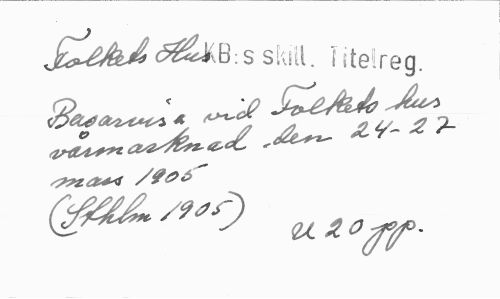 Folkets Hus KB:s skill. Titelreg.
Basarvisa vid Folkets hus
vårmarknad den 24-27
mars 1905
(Sthlm 1905)
U 20 pp.